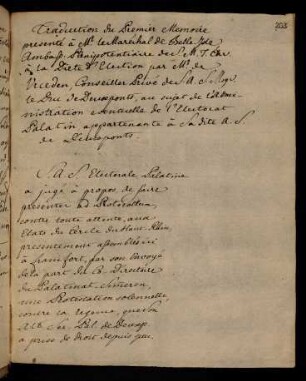 Traduction du Premier Memoire
presenté à Mr. le Marechal de Belle Isle
Ambassr. Plenipotentiaire de S. M. T. Chr.
à la Diete d'Election par Mr. de
Wreden, Conseiller Privé de S. A. S. Mgr.
le Duc de Deuxponts, au sujet de l'Admi-
nistration eventuelle de l'Electorat
Palatin appartenante à Sa dite A. S.
de Deuxponts.
S. A. S. Electorale Palatine
a jugé à propos de faire
presenter ad Dictaturam,
contre toute attente, aux
Etats du Cercle du Haut Rhin,
presentement assemblés ici
à francfort, par son Envoyé
de la part du Directoire
du Palatinat
une Protestation solemnelle
contre la regence, que Son
Alt. Ser. Pal. de Deuxp.
a prise de droit depuis que